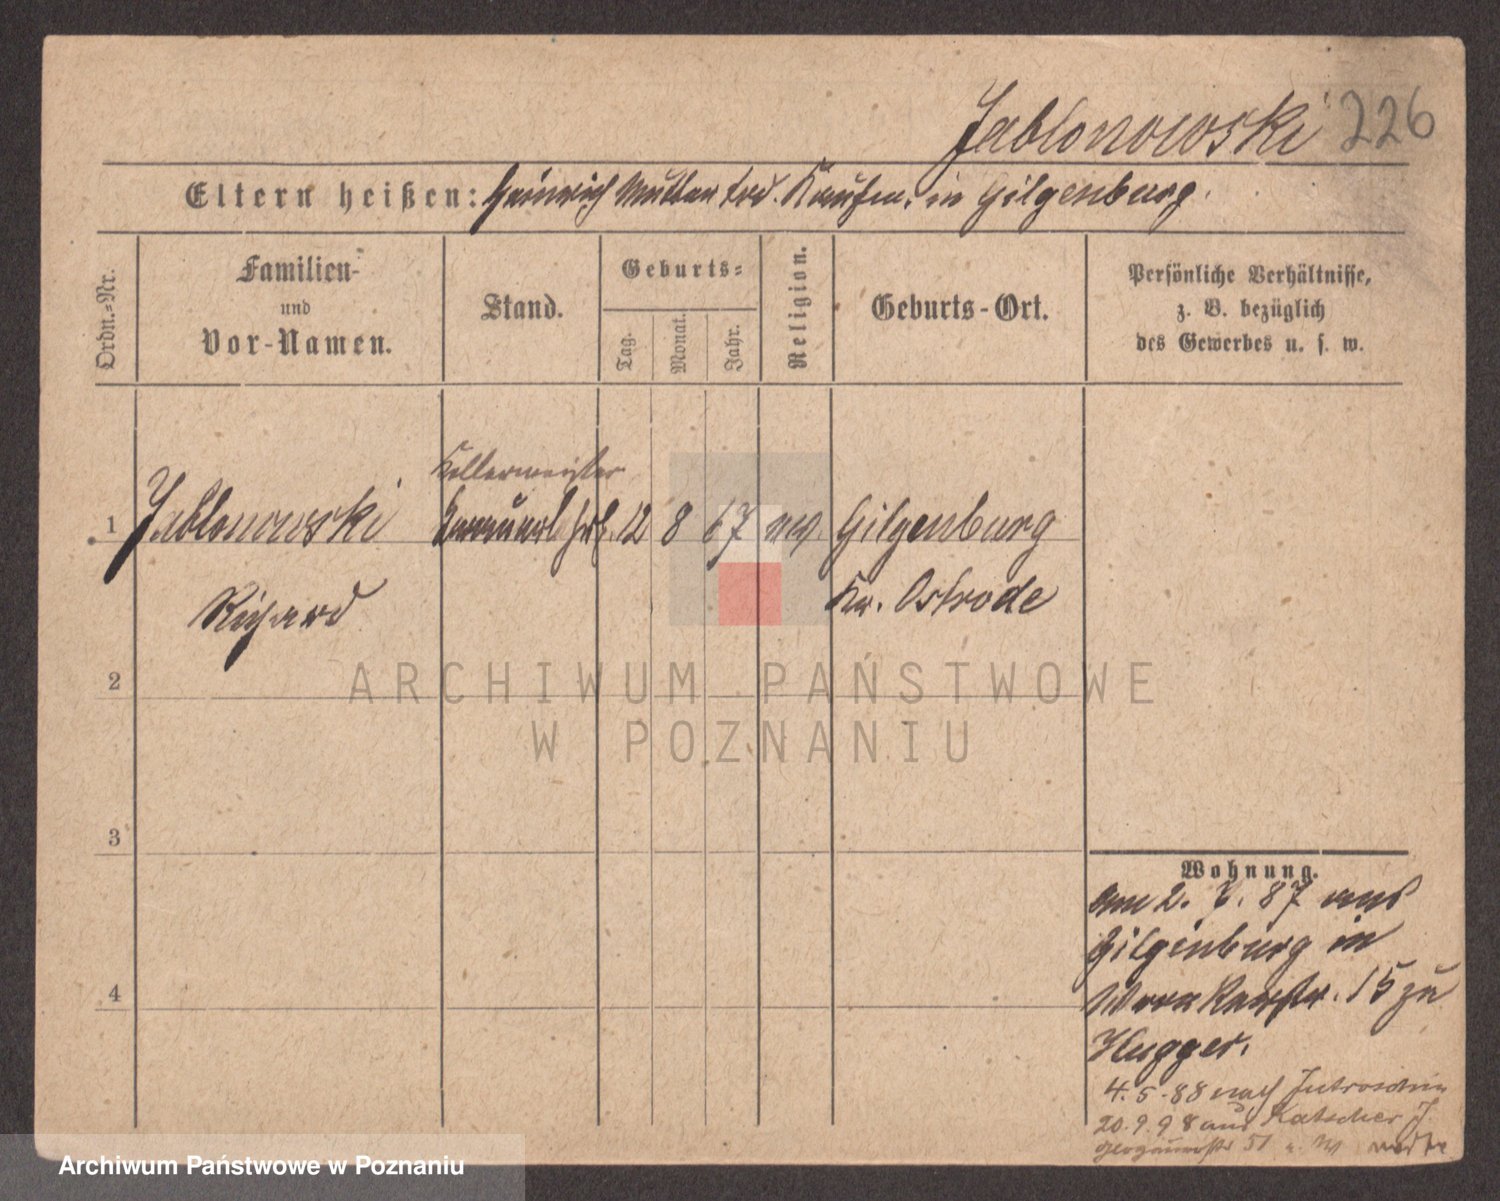 Jablonowski 226
Eltern heißen: Heinrich Mutter tod. Kaufm. in Gilgenburg.
Ordn.=Nr.
Familien-
und
Vor-Namen.
Stand.
Geburts=
Tag.
Monat.
Jahr.
Religion.
Geburts-Ort.
Persönliche Verhältnisse,
z. B. bezüglich
des Gewerbes u. s. w.
Kellermeister
1 Jablonowski 12 8 67 Gilgenburg
Richard Kr. Ostrode
2
3
4
Wohnung.
am 2. 7. 87 aus
Gilgenburg in
15 zu
Hugger.
4. 5. 88 nach Jutroschin
20. 9. 98 aus Katscher
51
ARCHIWUM PAŃSTWOWE
W POZNANIU
Archiwum Państwowe w Poznaniu